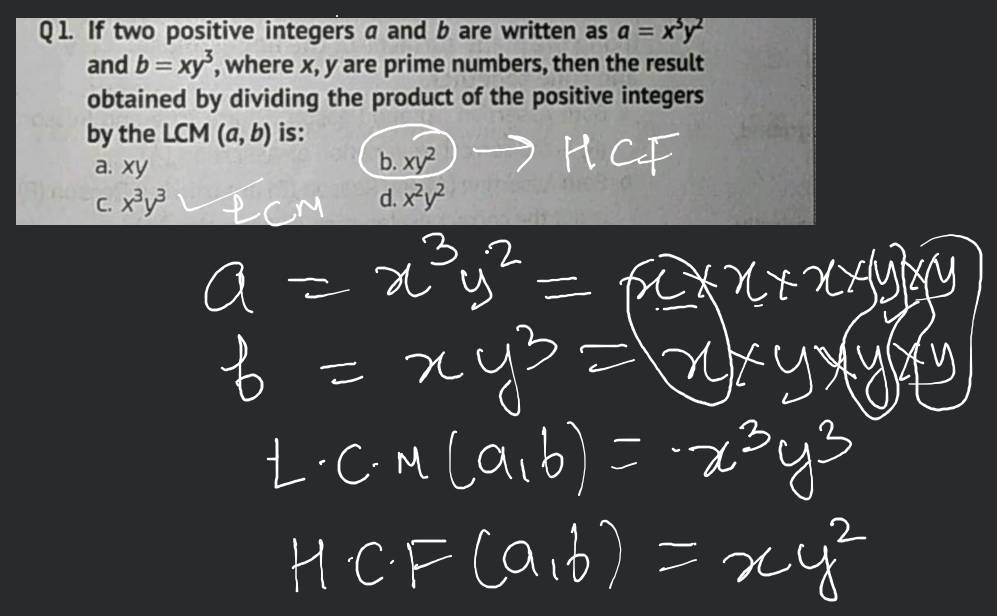 Q1. If two positive integers a and b are written as a = x³y²
and b = xy³, where x, y are prime numbers, then the result
obtained by dividing the product of the positive integers
by the LCM (a, b) is:
a. xy
b. xy² → HCF
c. x³y³ ✓ LCM
d. x²y²
a = x³y² = x × x × x × y × y
b = xy³ = x × y × y × y
L.C.M (a,b) = x³y³
H.C.F (a,b) = xy²